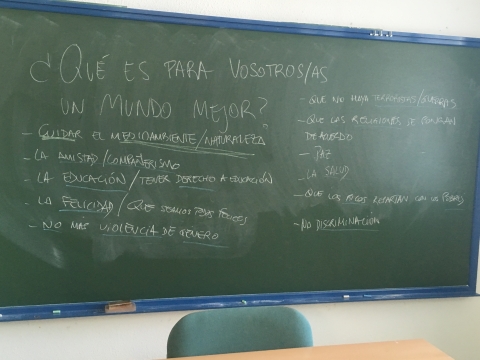 ¿QUÉ ES PARA VOSOTROS/AS
UN MUNDO MEJOR?
- CUIDAR EL MEDIOAMBIENTE/NATURALEZA
- LA AMISTAD/COMPAÑERISMO
- LA EDUCACIÓN/TENER DERECHO A EDUCACIÓN
- LA FELICIDAD/QUE SEAMOS TODOS FELICES
- NO MÁS VIOLENCIA DE GÉNERO
- QUE NO HAYA TERRORISTAS/
- QUE LAS RELIGIONES SE PONGAN
DE ACUERDO
- PAZ
- LA SALUD
- QUE LOS RICOS REPARTAN CON LOS POBRES
- NO DISCRIMINACIÓN